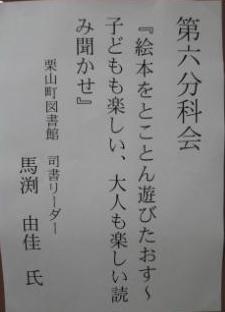 第六分科会
『絵本をとことん遊びたおす～
子どもも楽しい、大人も楽しい読
み聞かせ』
栗山町図書館　司書リーダー
馬渕　由佳　氏